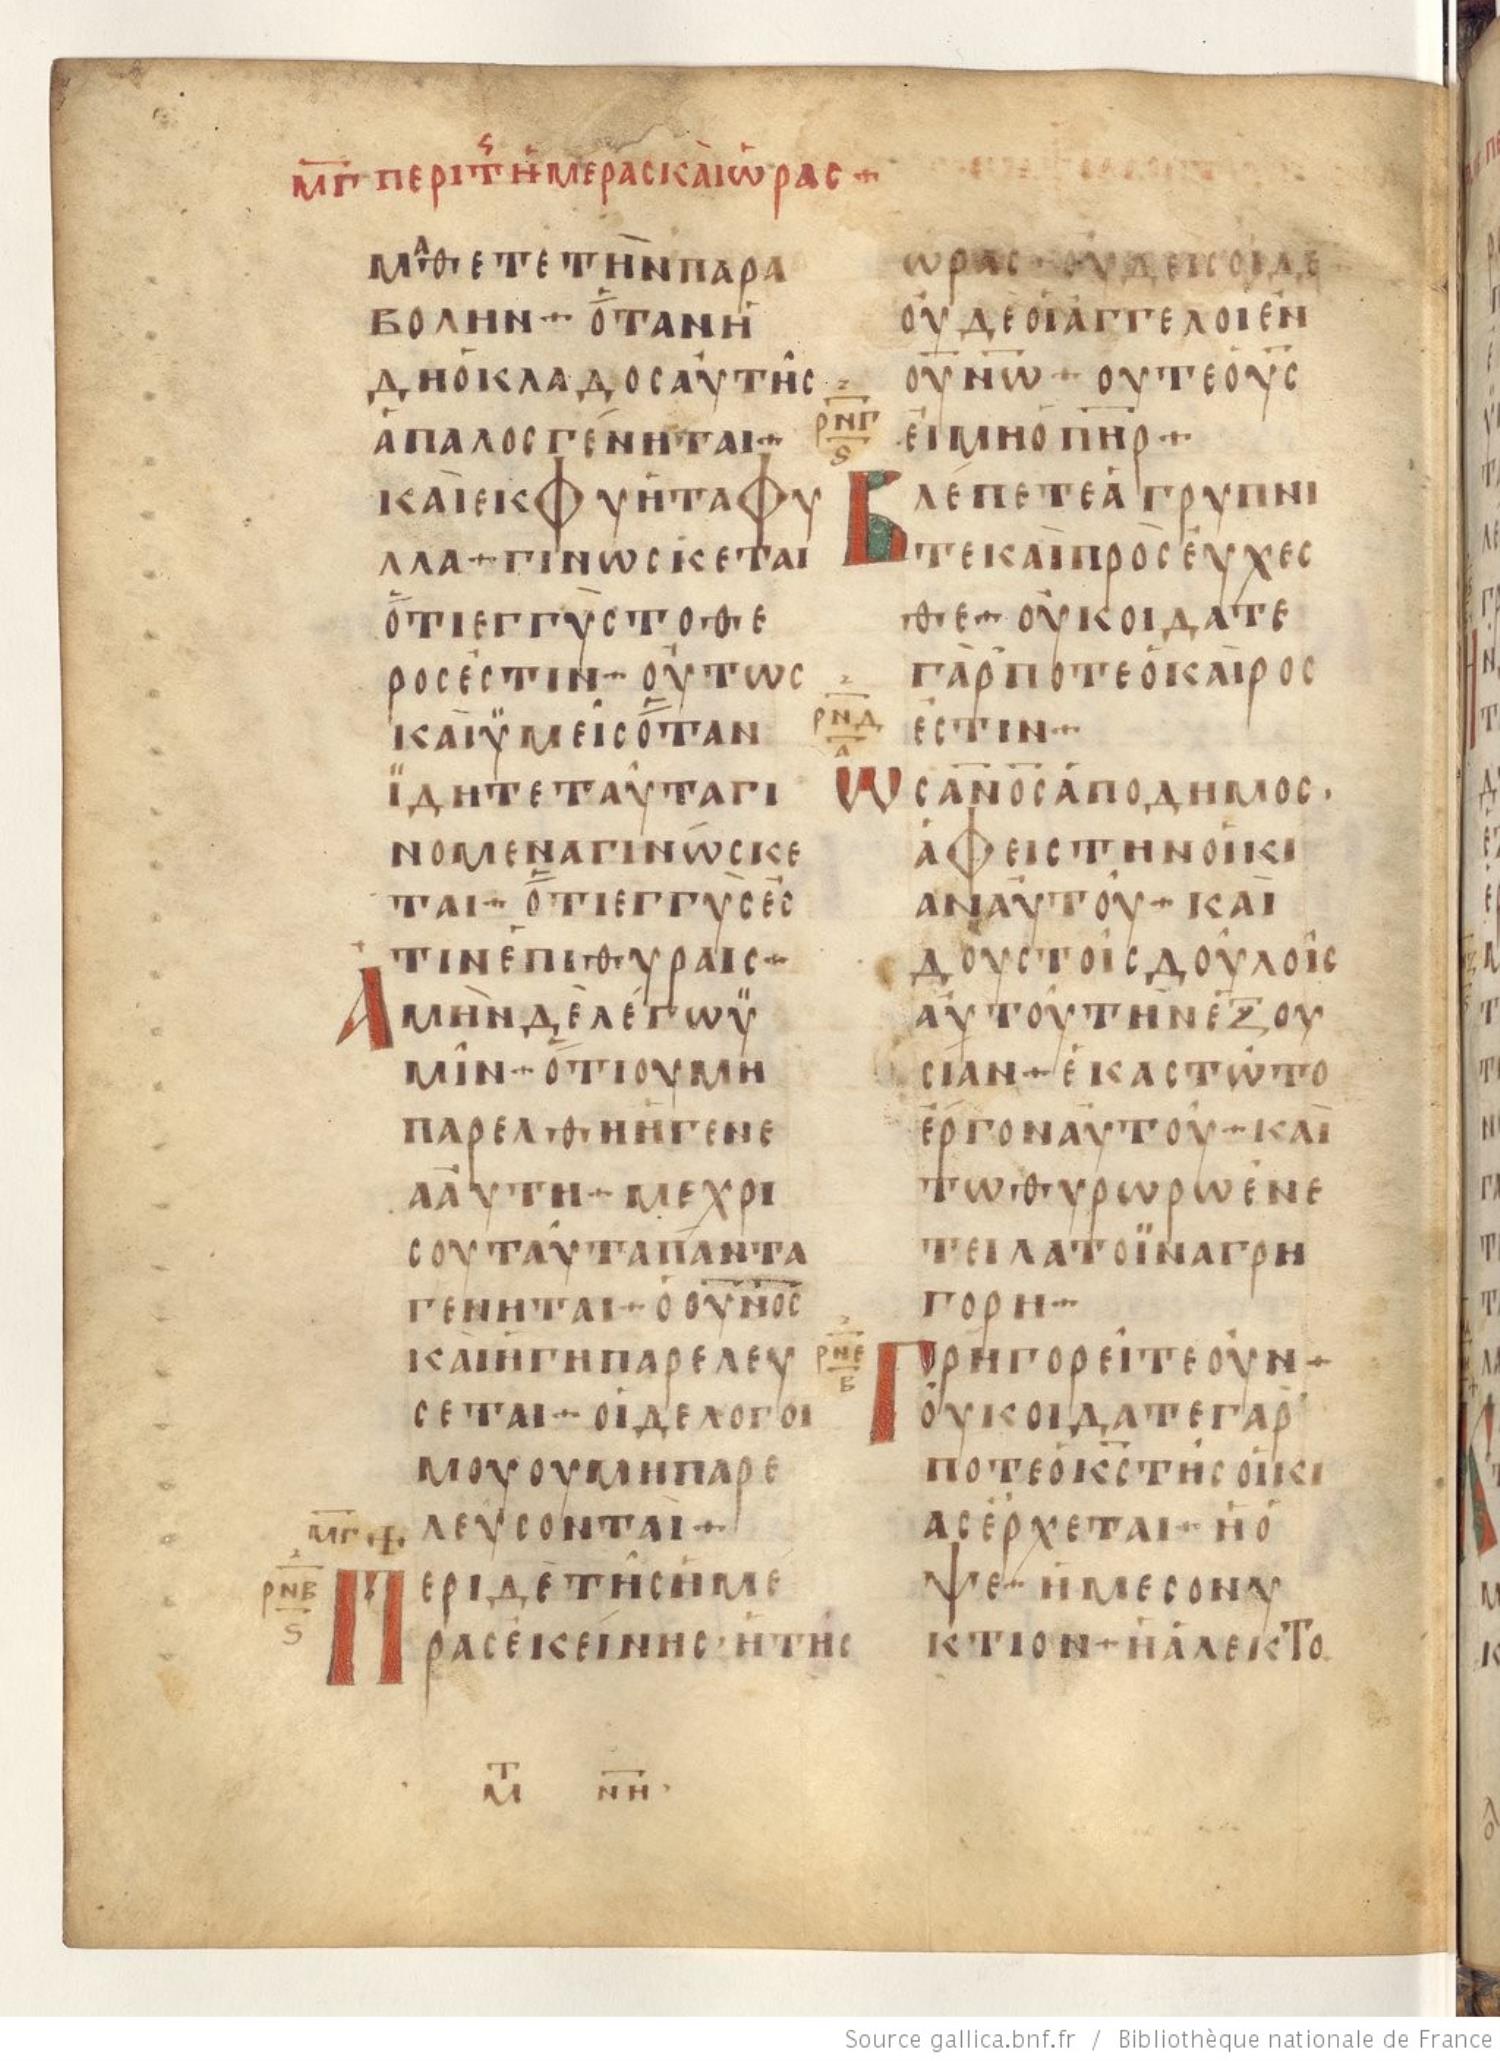 ΜΓ ΠΕΡΙ Τ͂ς ἩΜΕΡΑΣ ΚΑΙ ὩΡΑΣ +
ΜΑΘΕΤΕ ΤΗΝ ΠΑΡΑ
ΒΟΛΗΝ + ὉΤΑΝ Η
ΔΗ Ο ΚΛΑΔΟΣ ΑΥΤΗΣ
ΑΠΑΛΟΣ ΓΕΝΗΤΑΙ +
ΚΑΙ ΕΚΦΥΗ ΤΑ ΦΥ
ΛΛΑ + ΓΙΝΩΣΚΕΤΑΙ
ὉΤΙ ΕΓΓΥΣ ΤΟ ΘΕ
ΡΟΣ ΕΣΤΙΝ + ΟΥΤΩΣ
ΚΑΙ ΫΜΕΙΣ ὉΤΑΝ
ΪΔΗΤΕ ΤΑΥΤΑ ΓΙ
ΝΟΜΕΝΑ ΓΙΝΩΣΚΕ
ΤΑΙ + ὉΤΙ ΕΓΓΥΣ ΕΣ
ΤΙΝ ΕΠΙ ΘΥΡΑΙΣ +
ΑΜΗΝ ΔΕ ΛΕΓΩ Ϋ
ΜΙΝ + ὉΤΙ ΟΥ ΜΗ
ΠΑΡΕΛΘΗ Η ΓΕΝΕ
Α ΑΥΤΗ + ΜΕΧΡΙ
Σ ΟΥ ΤΑΥΤΑ ΠΑΝΤΑ
ΓΕΝΗΤΑΙ + Ο ΟΥΝΟΣ
ΚΑΙ Η ΓΗ ΠΑΡΕΛΕΥ
ΣΕΤΑΙ + ΟΙ ΔΕ ΛΟΓΟΙ
ΜΟΥ ΟΥ ΜΗ ΠΑΡΕ
ΜΓ + ΛΕΥΣΟΝΤΑΙ +
ΡΝΒ ς ΠΕΡΙ ΔΕ ΤΗΣ ΗΜΕ
ΡΑΣ ΕΚΕΙΝΗΣ · Η ΤΗΣ
ΩΡΑΣ + ΟΥΔΕΙΣ ΟΙΔΕ
ΟΥΔΕ ΟΙ ΑΓΓΕΛΟΙ ΕΝ
ΟΥΝΩ + ΟΥΤΕ Ο ΥΣ
ΡΝΓ ς ΕΙ ΜΗ Ο ΠΗΡ +
ΒΛΕΠΕΤΕ ΑΓΡΥΠΝΙ
ΤΕ ΚΑΙ ΠΡΟΣΕΥΧΕΣ
ΘΕ + ΟΥΚ ΟΙΔΑΤΕ
ΓΑΡ ΠΟΤΕ Ο ΚΑΙΡΟΣ
ΡΝΔ ΕΣΤΙΝ +
ΩΣ ΑΝΟΣ ΑΠΟΔΗΜΟΣ ·
ΑΦΕΙΣ ΤΗΝ ΟΙΚΙ
ΑΝ ΑΥΤΟΥ + ΚΑΙ
ΔΟΥΣ ΤΟΙΣ ΔΟΥΛΟΙΣ
ΑΥΤΟΥ ΤΗΝ ΕΞΟΥ
ΣΙΑΝ + ΕΚΑΣΤΩ ΤΟ
ΕΡΓΟΝ ΑΥΤΟΥ + ΚΑΙ
ΤΩ ΘΥΡΩΡΩ ΕΝΕ
ΤΕΙΛΑΤΟ ΪΝΑ ΓΡΗ
ΓΟΡΗ +
ΡΝΕ Β ΓΡΗΓΟΡΕΙΤΕ ΟΥΝ +
ΟΥΚ ΟΙΔΑΤΕ ΓΑΡ
ΠΟΤΕ Ο ΚΣ ΤΗΣ ΟΙΚΙ
ΑΣ ΕΡΧΕΤΑΙ + Η Ο
ΨΕ + Η ΜΕΣΟΝΥ
ΚΤΙΟΝ + Η ΑΛΕΚΤΟ
ΜΤ ΝΗ ·
Source gallica.bnf.fr / Bibliothèque nationale de France